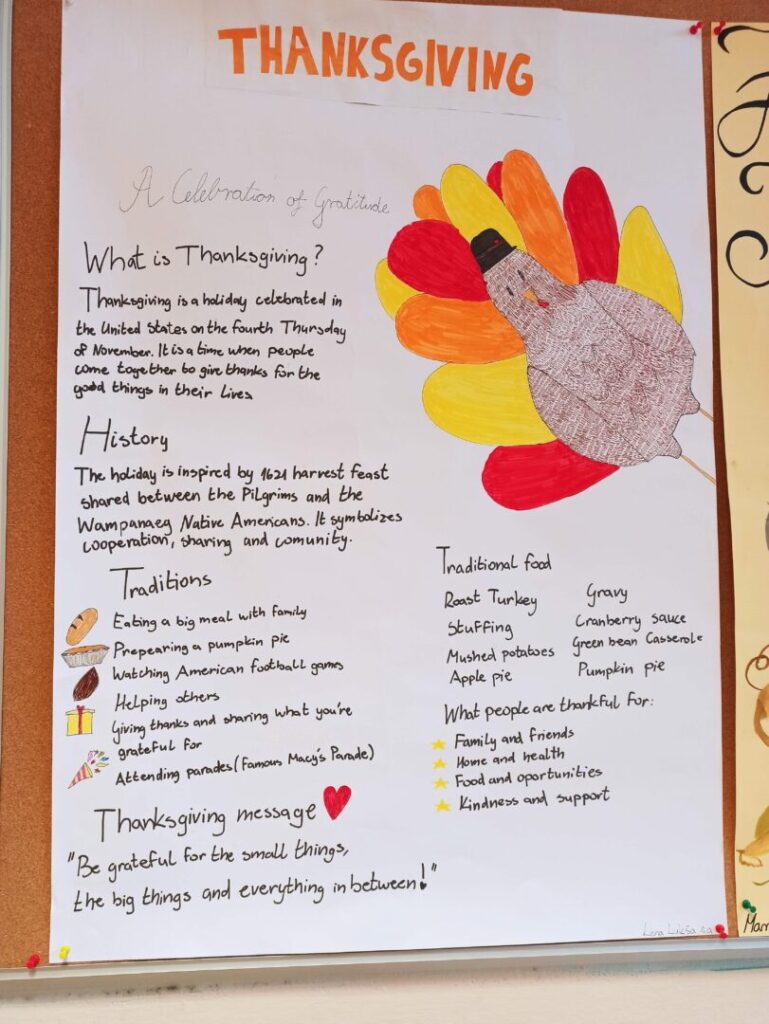 THANKSGIVING
A Celebration of Gratitude
What is Thanksgiving?
Thanksgiving is a holiday celebrated in
the United States on the fourth Thursday
of November. It is a time when people
come together to give thanks for the
good things in their lives
History
The holiday is inspired by 1621 harvest feast
shared between the Pilgrims and the
Wampanaeg Native Americans. It symbolizes
cooperation, sharing and comunity.
Traditions
Eating a big meal with family
Prepearing a pumpkin pie
Watching American football gams
Helping others
Giving thanks and sharing what you're
grateful for
Attending parades (Famous Macy's Parade)
Thanksgiving message
"Be grateful for the small things,
the big things and everything in between!"
Traditional food
Roast Turkey
Stuffing
Mushed potatoes
Apple pie
Gravy
Cranberry sauce
Green bean Casserole
Pumpkin pie
What people are thankful for:
Family and friends
Home and health
Food and oportunities
Kindness and support